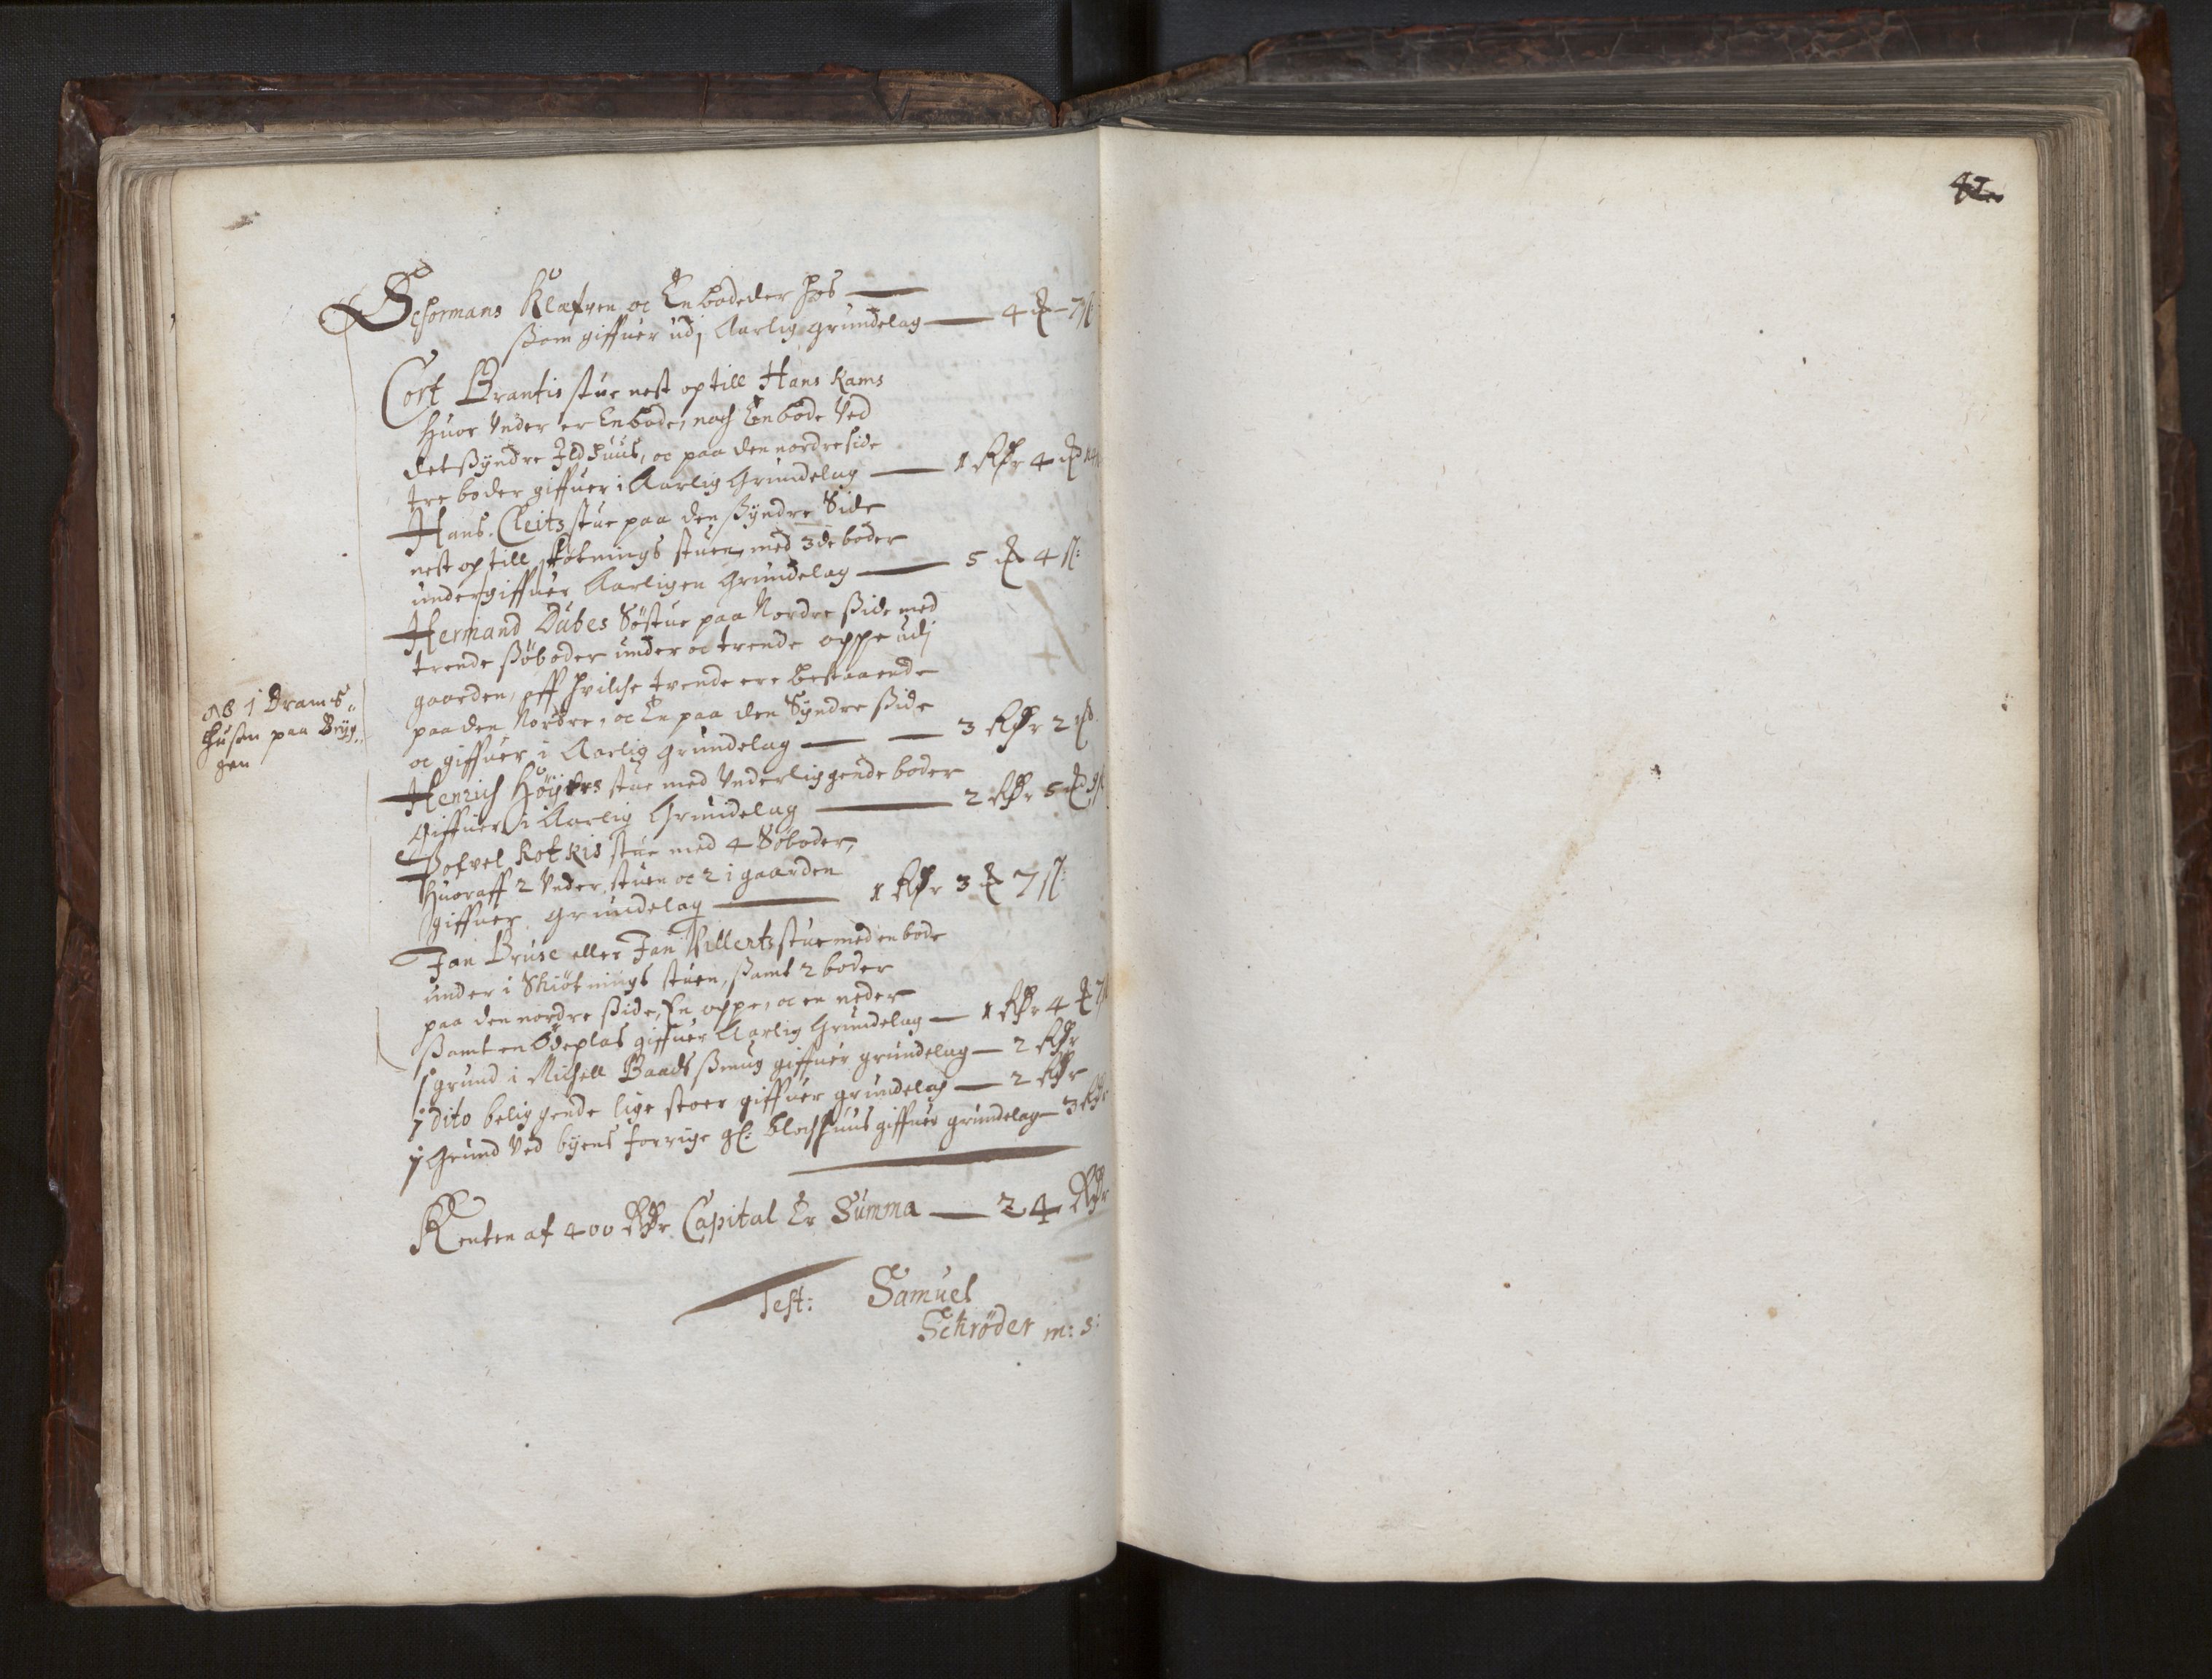 Schormans Klafven oc En bode der hos —
ßom giffuer udj Aarlig grundelag — 4 ꝶ — 7 ß
Cort Brantis stue nest op till Hans Kams
Huor Vnder er En bode, noch En bode Ved
det ßyndre Ildhuus, oc paa den nordre side
tre boder giffuer i Aarlig Grundelag — 1 Rdr 4 ꝶ 14 ß
Hans Cleits stue paa den ßyndre Side
nest op till skötnings stuen, med 3de boder
under giffuer Aarligen Grundelag — 5 ꝶ 4 ß:
Hermand Dubes Söstue paa Nordre ßide med
trende ßöboder under oc trende oppe udj
gaarden, aff hvilche tvende ere bestaaende
paa den Nordre, oc En paa den Syndre ßide
oc giffuer i Aarlig grundelag — — 3 Rdr 2 ꝶ
AB i Drams-
husen paa Bryg-
gen
Henrich Höykers stue med Vnderliggende boder
Giffuer i Aarlig Grundelag — 2 Rdr 5 ꝶ
Kotkis stue med 4 Söboder,
Huoraff 2 Vnder stuen oc 2 i gaarden
giffuer grundelag — 1 Rdr 3 ꝶ 7 ß:
Jan Bruse eller Jan Villerts stue med en bode
under i Skiötnings stuen, ßamt 2 boder
paa den nordre ßide, En oppe, oc en neder
ßamt en Ödeplas giffuer Aarlig Grundelag — 1 Rdr 4 ꝶ 7 ß
1 grund i Michell Baads ßmug giffuer grundelag — 2 Rdr
1 Dito beliggende lige ofver giffuer grundelag — 2 Rdr
1 Grund Ved byens forrige gl: blochhuus giffuer grundelag — 3 Rdr
Renten af 400 Rdr Capital Er Summa — 24 Rdr
Test: Samuel
Schrøder m: s: